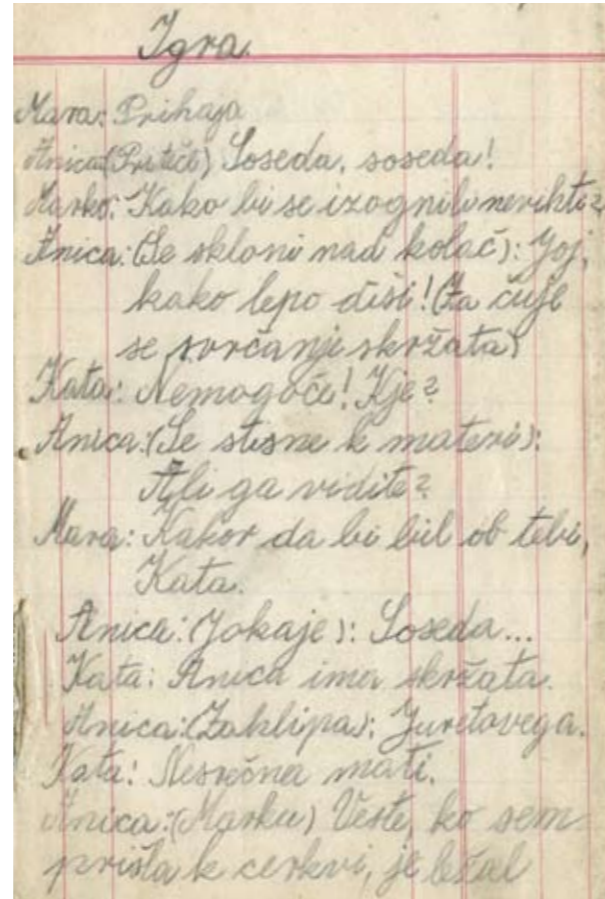 Igra.
Mara: Prihaja
Anica: (Priteče) Soseda, soseda!
Marko: Kako bi se izognili nevihti?
Anica: (Se skloni nad kolač): Joj,
kako lepo diši! (Za čuje
se svrčanje skržata)
Kata: Nemogoče! Kje?
Anica: (Se stisne k materi):
Ali ga vidite?
Mara: Kakor da bi bil ob tebi,
Kata.
Anica: (Jokaje): Soseda...
Kata: Anica ima skržata.
Anica: (Zahlipa): Juretovega.
Kata: Nesrečna mati.
Anica: (Marku) Veste, ko sem
prišla k cerkvi, je ležal